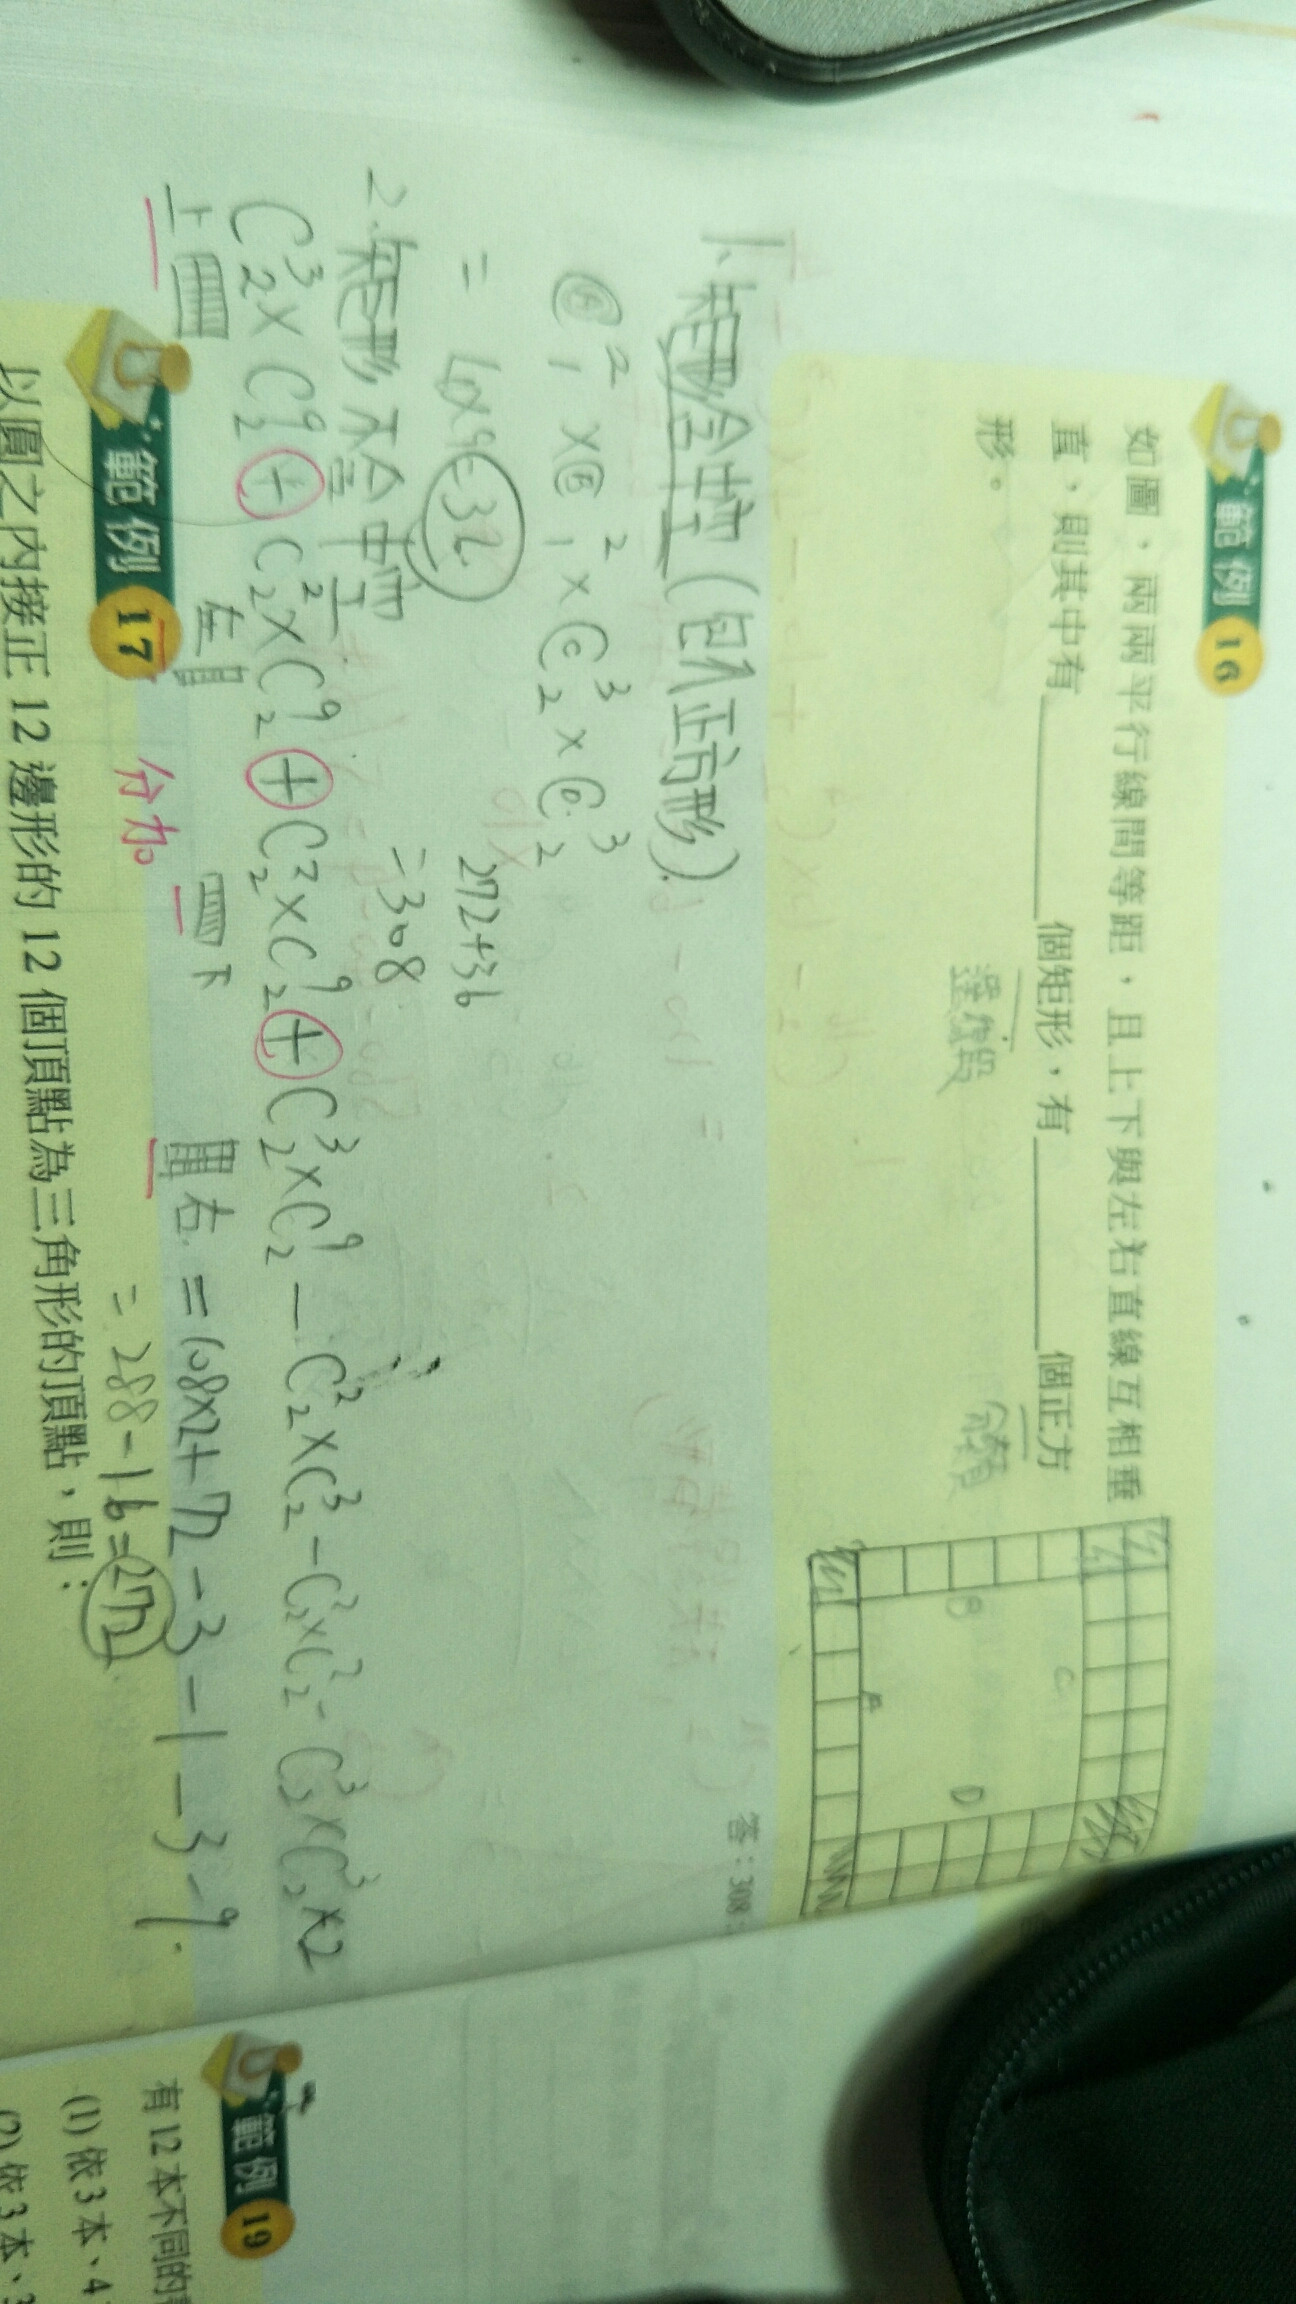 範例 16
如圖，兩兩平行線間等距，且上下與左右直線互相垂
直，則其中有＿＿＿個矩形，有＿＿＿個正方
形。
B
C
D
答：308；
1. 矩形含中空(但不正方形).
C²₁×C²₁×C³₂×C³₂
= 4×9=36
272+36
=308
2. 矩形不含中空
C³₂×C⁹₂+C²₂×C⁹₂+C²₂×C⁹₂+C³₂×C⁹₂-C²₂×C³₂-C²₂×C²₂-C³₂×C³₂×2
上 左 下 右 =108×2+72-3-1-3-9.
分加。
=288-16=272
範例 17
以圓之內接正 12 邊形的 12 個頂點為三角形的頂點，則：
範例 19
有 12 本不同的
(1) 依 3 本、4
(2) 依 3 本、3